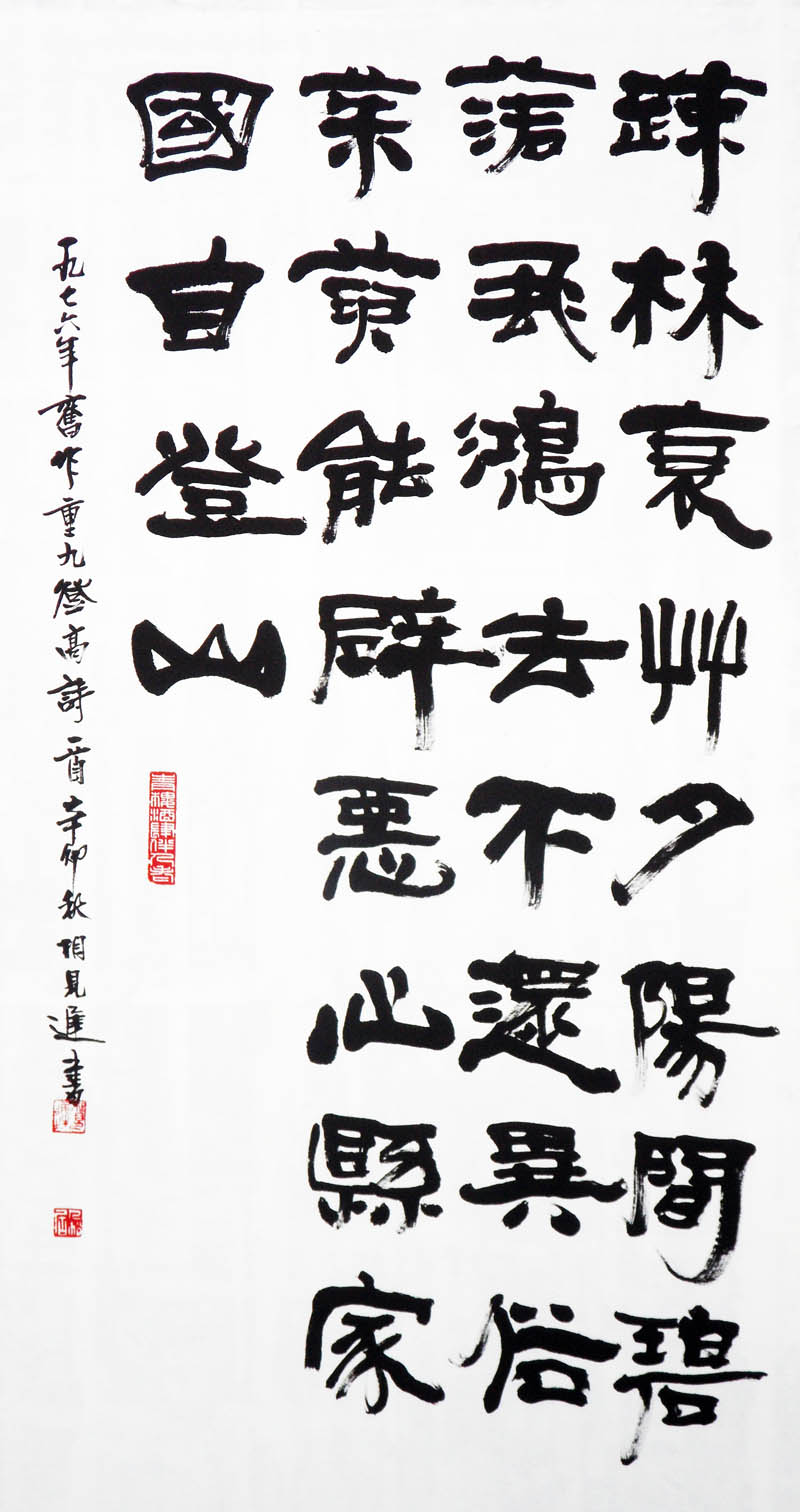 疎林衰艸夕陽間碧
落飛鴻去不還異俗
茱萸能辟惡心縣家
國自登山
一九七六年舊作重九登高詩一首辛卯秋見進書